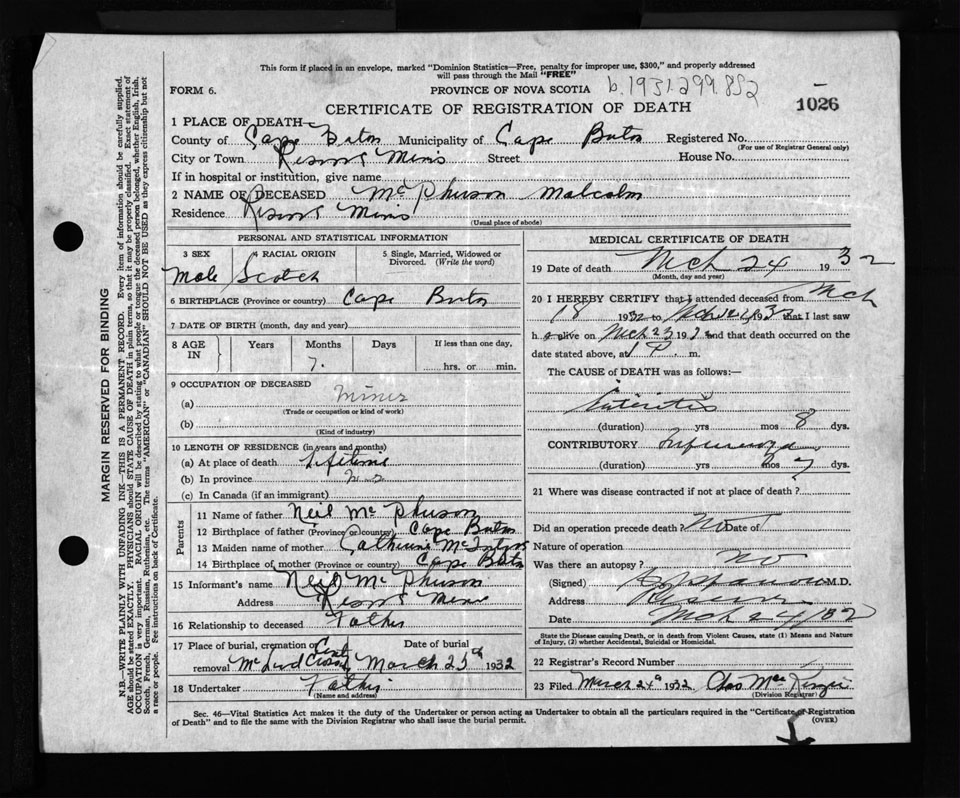 This form if placed in an envelope, marked "Dominion Statistics—Free, penalty for improper use, $300," and properly addressed
will pass through the Mail "FREE"
FORM 6. PROVINCE OF NOVA SCOTIA b.1931.299.852
CERTIFICATE OF REGISTRATION OF DEATH 1026
1 PLACE OF DEATH—
County of Cape Breton Municipality of Cape Breton Registered No.
(For use of Registrar General only)
City or Town Reserve Mines Street House No.
If in hospital or institution, give name
2 NAME OF DECEASED McPherson Malcolm
Residence Reserve Mines
(Usual place of abode)
PERSONAL AND STATISTICAL INFORMATION
3 SEX 4 RACIAL ORIGIN 5 Single, Married, Widowed or
Divorced. (Write the word)
Male Scotch
6 BIRTHPLACE (Province or country) Cape Breton
7 DATE OF BIRTH (month, day and year)
8 AGE IN Years Months Days If less than one day,
7. hrs. or min.
9 OCCUPATION OF DECEASED
(a) Miner
(Trade or occupation or kind of work)
(b)
(Kind of industry)
10 LENGTH OF RESIDENCE (in years and months)
(a) At place of death Lifetime
(b) In province N.S
(c) In Canada (if an immigrant)
Parents
11 Name of father Neil McPherson
12 Birthplace of father (Province or country) Cape Breton
13 Maiden name of mother Catherine McIntyre
14 Birthplace of mother (Province or country) Cape Breton
15 Informant's name Neil McPherson
Address Reserve Mines
16 Relationship to deceased Father
17 Place of burial, cremation or Date of burial
removal McLeod Crossing March 25th 1932
18 Undertaker Father
(Name and address)
MEDICAL CERTIFICATE OF DEATH
19 Date of death Mch 24 1932
(Month, day and year)
20 I HEREBY CERTIFY that I attended deceased from Mch
18 1932 to Mch 1932 that I last saw
h alive on Mch 23 193 and that death occurred on
date stated above, at 1 P. m.
The CAUSE of DEATH was as follows:—
Enteritis
(duration) yrs mos 8 dys.
CONTRIBUTORY Influenza
(duration) yrs mos 7 dys.
21 Where was disease contracted if not at place of death?
Did an operation precede death? No Date of
Nature of operation
Was there an autopsy? No
(Signed) M.D.
Address Reserve
Date Mch 24/32
State the Disease causing Death, or in death from Violent Causes, state (1) Means and Nature
of Injury, (2) whether Accidental, Suicidal or Homicidal.
22 Registrar's Record Number
23 Filed March 24th 1932 Chas MacKenzie
(Division Registrar)
Sec. 46—Vital Statistics Act makes it the duty of the Undertaker or person acting as Undertaker to obtain all the particulars required in the "Certificate of Registration
of Death" and to file the same with the Division Registrar who shall issue the burial permit. (OVER)
MARGIN RESERVED FOR BINDING
N.B.—WRITE PLAINLY WITH UNFADING INK—THIS IS A PERMANENT RECORD. Every item of information should be carefully supplied.
AGE should be stated EXACTLY. PHYSICIANS should STATE CAUSE OF DEATH in plain terms, so that it may be properly classified. Exact statement of
OCCUPATION is very important. RACIAL ORIGIN will be described by stating to what people or tongue the deceased person belonged, whether English, Irish,
Scotch, French, German, Russian, Ruthenian, etc. The terms "AMERICAN" or "CANADIAN" SHOULD NOT BE USED as they express citizenship but not
a race or people. See instructions on back of Certificate.